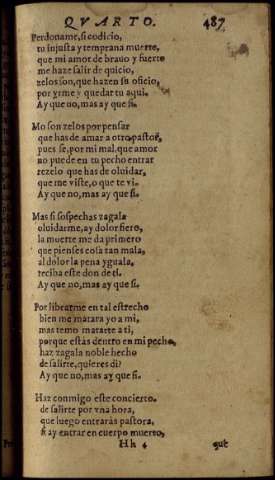 QVARTO. 487
Perdoname, si codicio,
tu injusta y temprana muerte,
que mi amor de brauo y fuerte
me haze salir de quicio,
zelos son, que hazen su oficio,
por yrme y quedar tu aqui.
Ay que no, mas ay que si.
Mo son zelos por pensar
que has de amar a otro pastor,
pues se, por mi mal, que amor
no puede en tu pecho entrar
rezelo que has de oluidar,
que me viste, o que te vi.
Ay que no, mas ay que si.
Mas si sospechas zagala
oluidarme, ay dolor fiero,
la muerte me da primero
que pienses cosa tan mala,
al dolor la pena yguala,
reciba este don de ti.
Ay que no, mas ay que si.
Por librarme en tal estrecho
bien me matara yo a mi,
mas temo matarte a ti,
porque estás dentro en mi pecho,
haz zagala noble hecho
de salirte, quieres di?
Ay que no, mas ay que si.
Haz conmigo este concierto.
de salirte por vna hora,
que luego entrarás pastora,
si ay entrar en cuerpo muerto,
Hh 4 que